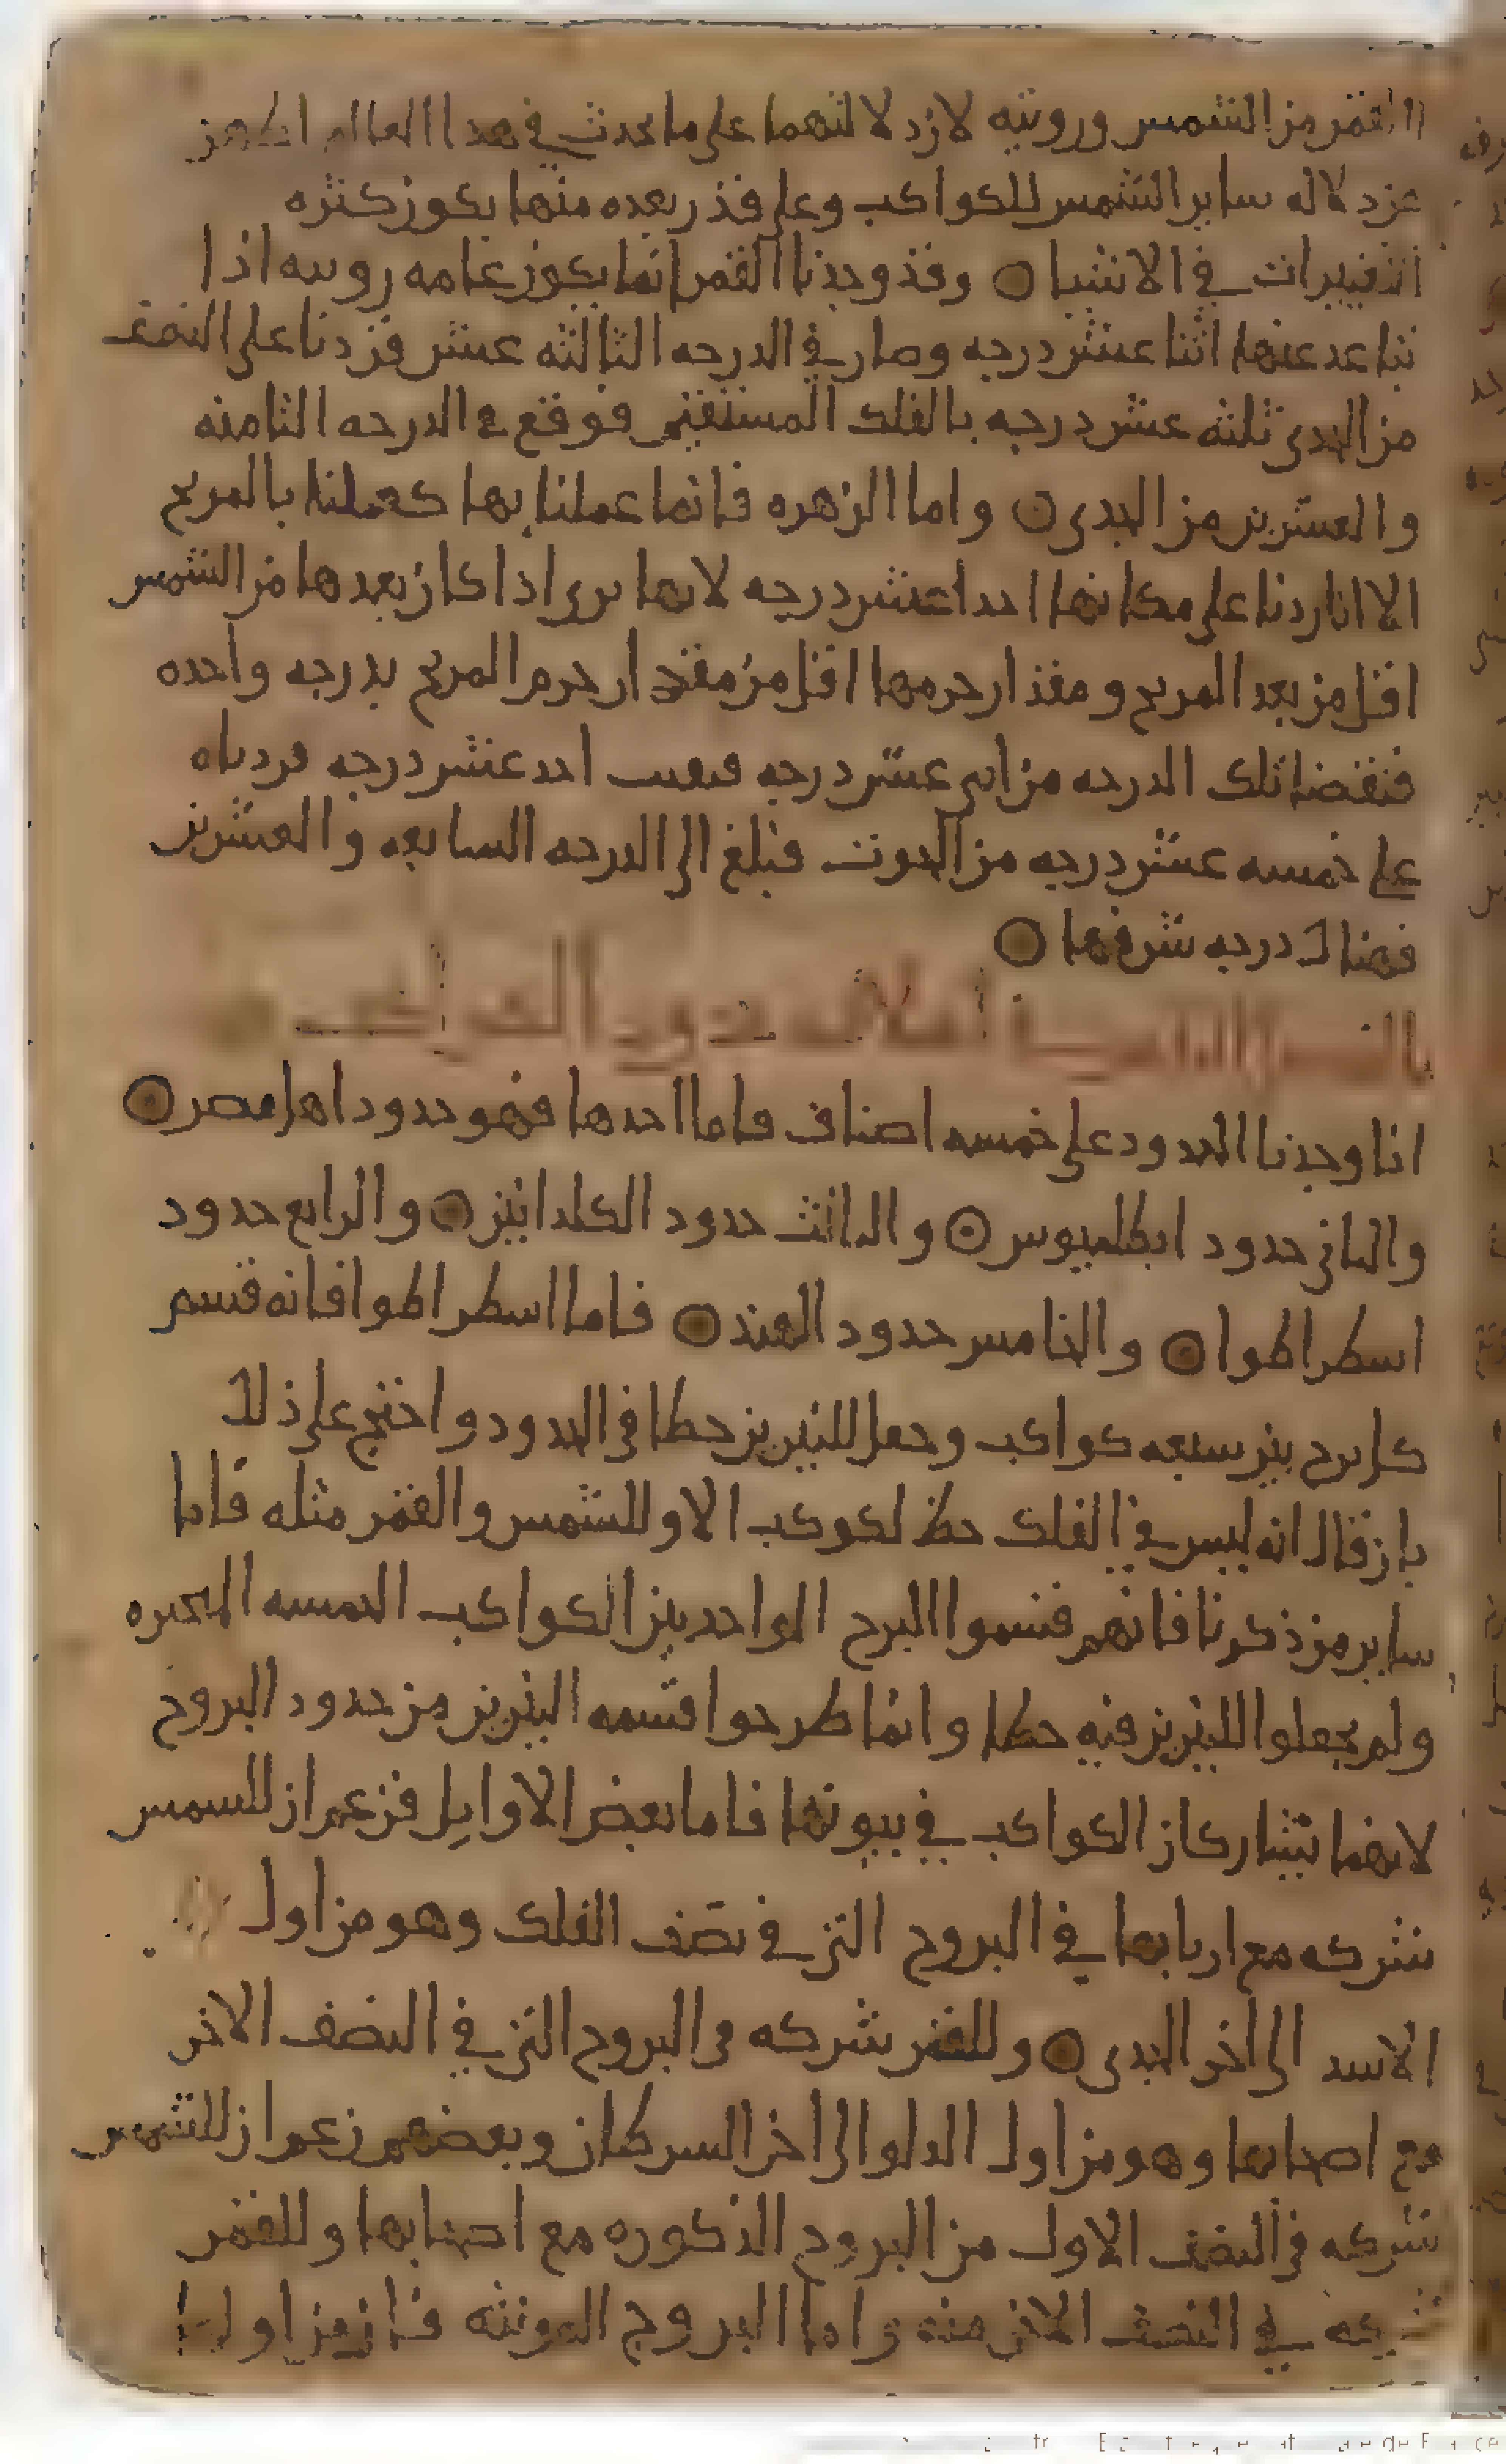 القمر من الشمس ورويته لان دلالتهما على ما يحدث في هدا العالم اظهر
من دلاله ساير الشمس للكواكب وعلى قدر بعده منها يكون كثره
التغييرات في الاشيا ٥ وقد وجدنا القمر انما يكون عامه رويته اذا
تباعد عنها اثنا عشر درجه وصار في الدرجه الثالثه عشر فزدنا على النصف
من الجدي ثلثه عشر درجه بالفلك المستقيم فوقع في الدرجه الثامنه
والعشرين من الجدي ٥ واما الزهره فانما عملنا بها كعملنا بالمريخ
الا انا زدنا على مكانها احد عشر درجه لانها ترى اذا كان بعدها من الشمس
اقل من بعد المريخ ومقدار جرمها اقل من مقدار جرم المريخ بدرجه واحده
فنقضنا تلك الدرجه من اثني عشر درجه فبقيت احد عشر درجه فزدناه
على خمسه عشر درجه من الحوت فبلغ الى الدرجه السابعه والعشرين
فهناك درجه شرفها ٥
في اختلاف حدود الكواكب
انا وجدنا الحدود على خمسه اصناف فاما احدها فهو حدود اهل مصر ٥
والثاني حدود ابطلميوس ٥ والثالث حدود الكلدانيين ٥ والرابع حدود
اسطراطوا ٥ والخامس حدود الهند ٥ فاما اسطراطوا فانه قسم
كل برج بين سبعه كواكب وجعل للنيرين حظا في الحدود واحتج على ذلك
بان قال انه ليس في الفلك حظ لكوكب الا وللشمس والقمر مثله فاما
ساير من ذكرنا فانهم قسموا البرج الواحد بين الكواكب الخمسه المتحيره
ولم يجعلوا للنيرين فيه حظا وانما طرحوا قسمه النيرين من حدود البروج
لانهما يتشاركان الكواكب في بيوتها فاما بعض الاوايل فزعم ان للشمس
شركه مع اربابها في البروج التي في نصف الفلك وهو من اول
الاسد الى اخر الجدي ٥ وللقمر شركه في البروج التي في النصف الاخر
مع اصحابها وهو من اول الدلو الى اخر السرطان وبعضهم زعم ان للشمس
شركه في النصف الاول من البروج الذكوره مع اصحابها وللقمر
شركه في النصف الاخر منه واما البروج المونثه فان من اولها